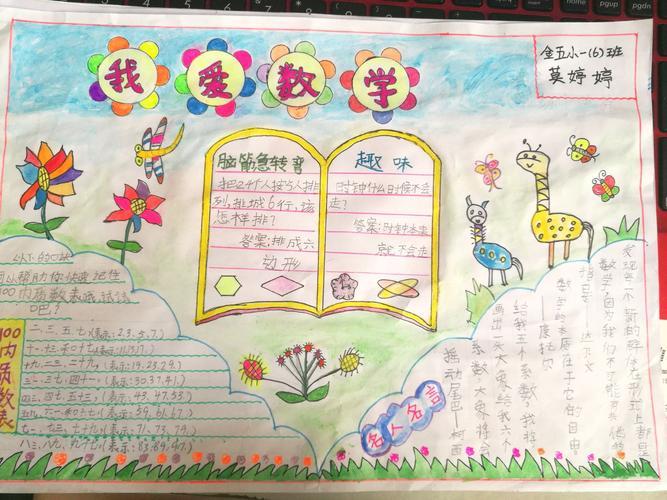 我爱数学
金五小一(6)班
莫婷婷
脑筋急转弯
把24个人按5人排
列,排城6行,该
怎样排?
答案:排成六
边形
趣味
时钟什么时候不会
走?
答案:时钟本来
就不会走
可以帮助你快速记住
100内质数表哦,试试
吧?
100内质数表
二、三、五、七(表示:2.3.5.7.)
十一、十三和十七(表示:11.13.17.)
十九、二三、二十九,(表示:19.23.29.)
三一、三七、四十一,(表示:
四三、四七、五十三,(表示:43.47.53.)
五九、六一和六十七(表示:59.61.67.)
七一、七三、七十九(表示:71.73.79.)
八三、八九、九十七(表示:83.89.97.)
名人名言
数学的本质在于它的自由
——康托尔
给我五个系数,我将
画出一头大象,给我六个
系数,大象将会
摇动尾巴—柯西